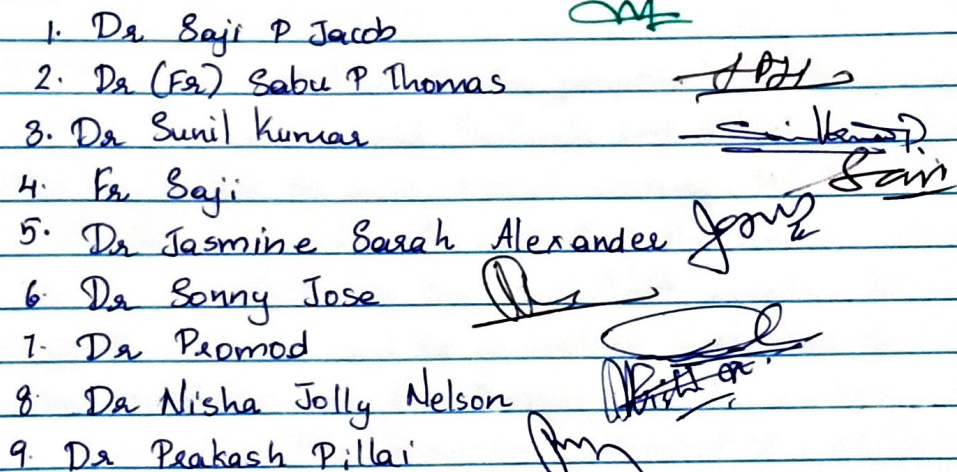 1. Dr Saji P Jacob
2. Dr (Fr) Sabu P Thomas
3. Dr Sunil Kumar
4. Fr Saji
5. Dr Jasmine Sarah Alexander
6. Dr Sonny Jose
7. Dr Promod
8 Dr Nisha Jolly Nelson
9. Dr Prakash Pillai